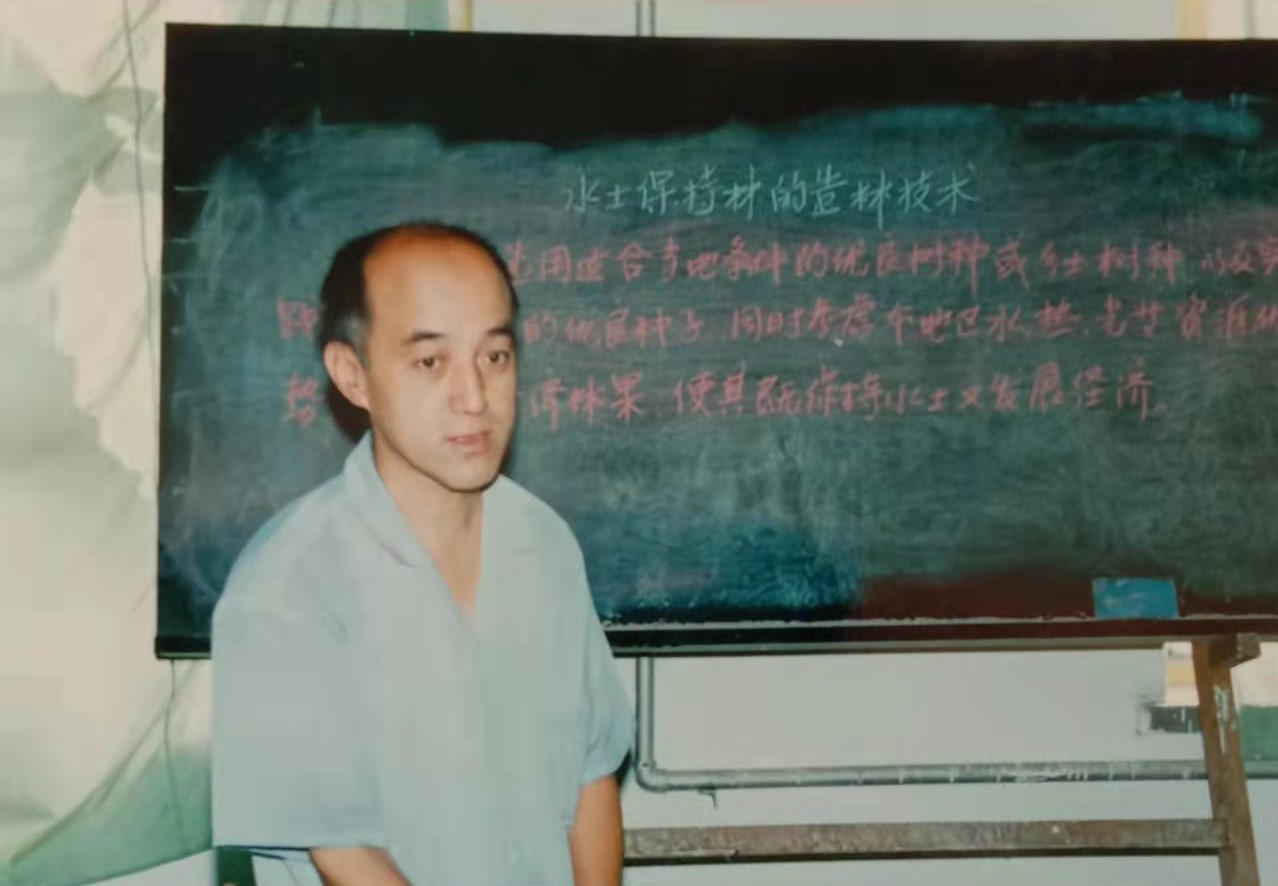 水土保持林的造林技术
选用适合当地条件的优良树种或乡土树种,以及实
的优良种子,同时考虑本地区水、热、光等资源优
势 济林果,使其既保持水土又发展经济。